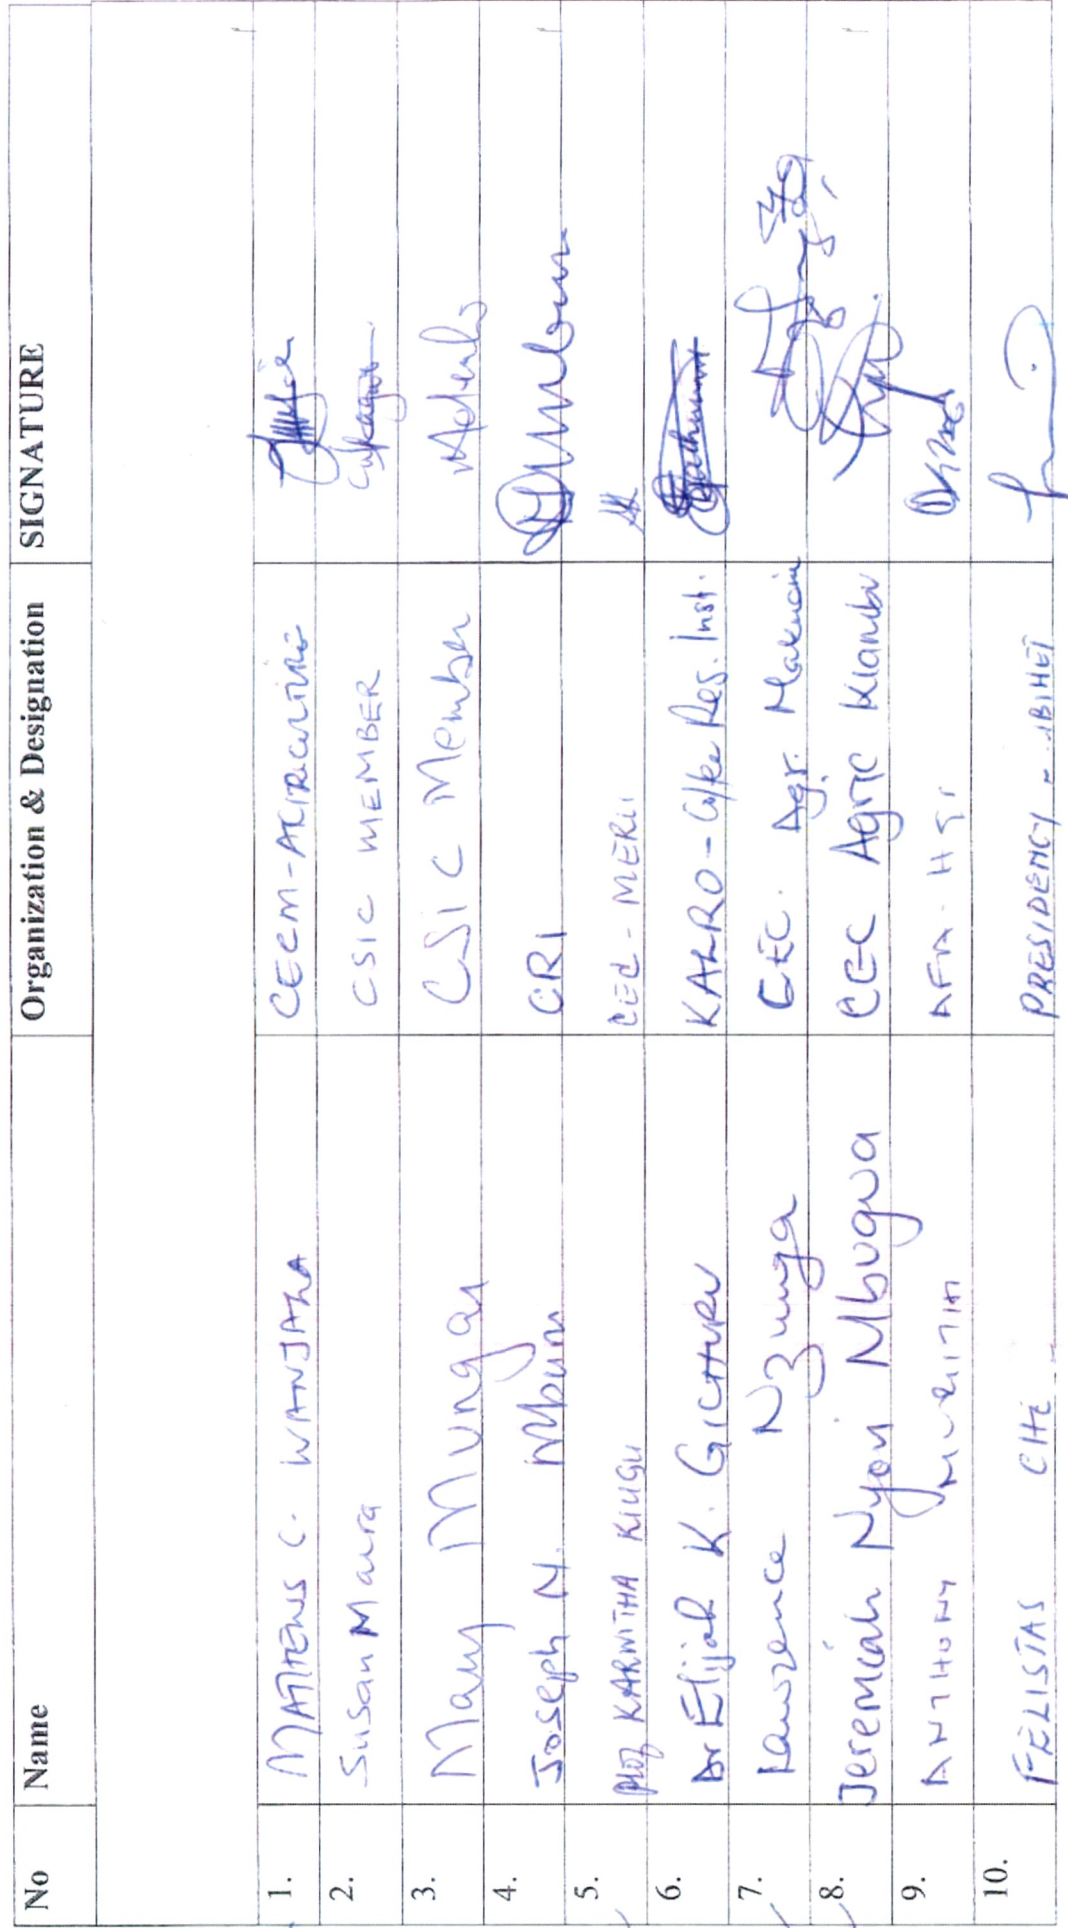 No Name Organization & Designation SIGNATURE
1. MATHEWS C. WANJALA CECM-AGRICULTURE
2. Susan Maura CSIC MEMBER
3. Mary Mungai CSIC Member
4. Joseph N. Mburu CRI
5. Prof KARWITHA KIUGU CEC - MERU
6. Dr Elijah K. GICHURU KALRO-Coffee Res. Inst.
7. Lawrence Nzunga CEC. Agr. Makueni
8. Jeremiah Nyori Mbugua CEC Agric Kiambu
9. ANTHONY MURIITHI AFA
10. FELISTAS PRESIDENCY